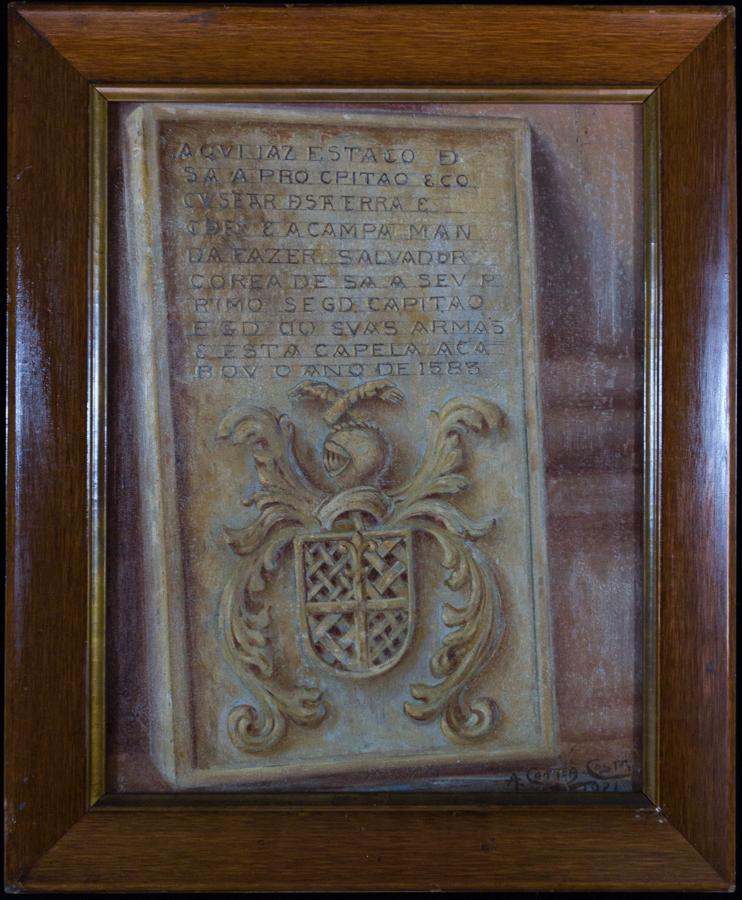 AQVI IAZ ESTACO D
SA A PRO CPITAO & CO
CVSTAR DSTA TERRA &
& A CAMPA MAN
DA FAZER SALVADOR
COREA DE SA A SEV P
RIMO SEGD CAPITAO
EGD CO SVAS ARMAS
& ESTA CAPELA ACA
BOV O ANO DE 1583
A. COSTA